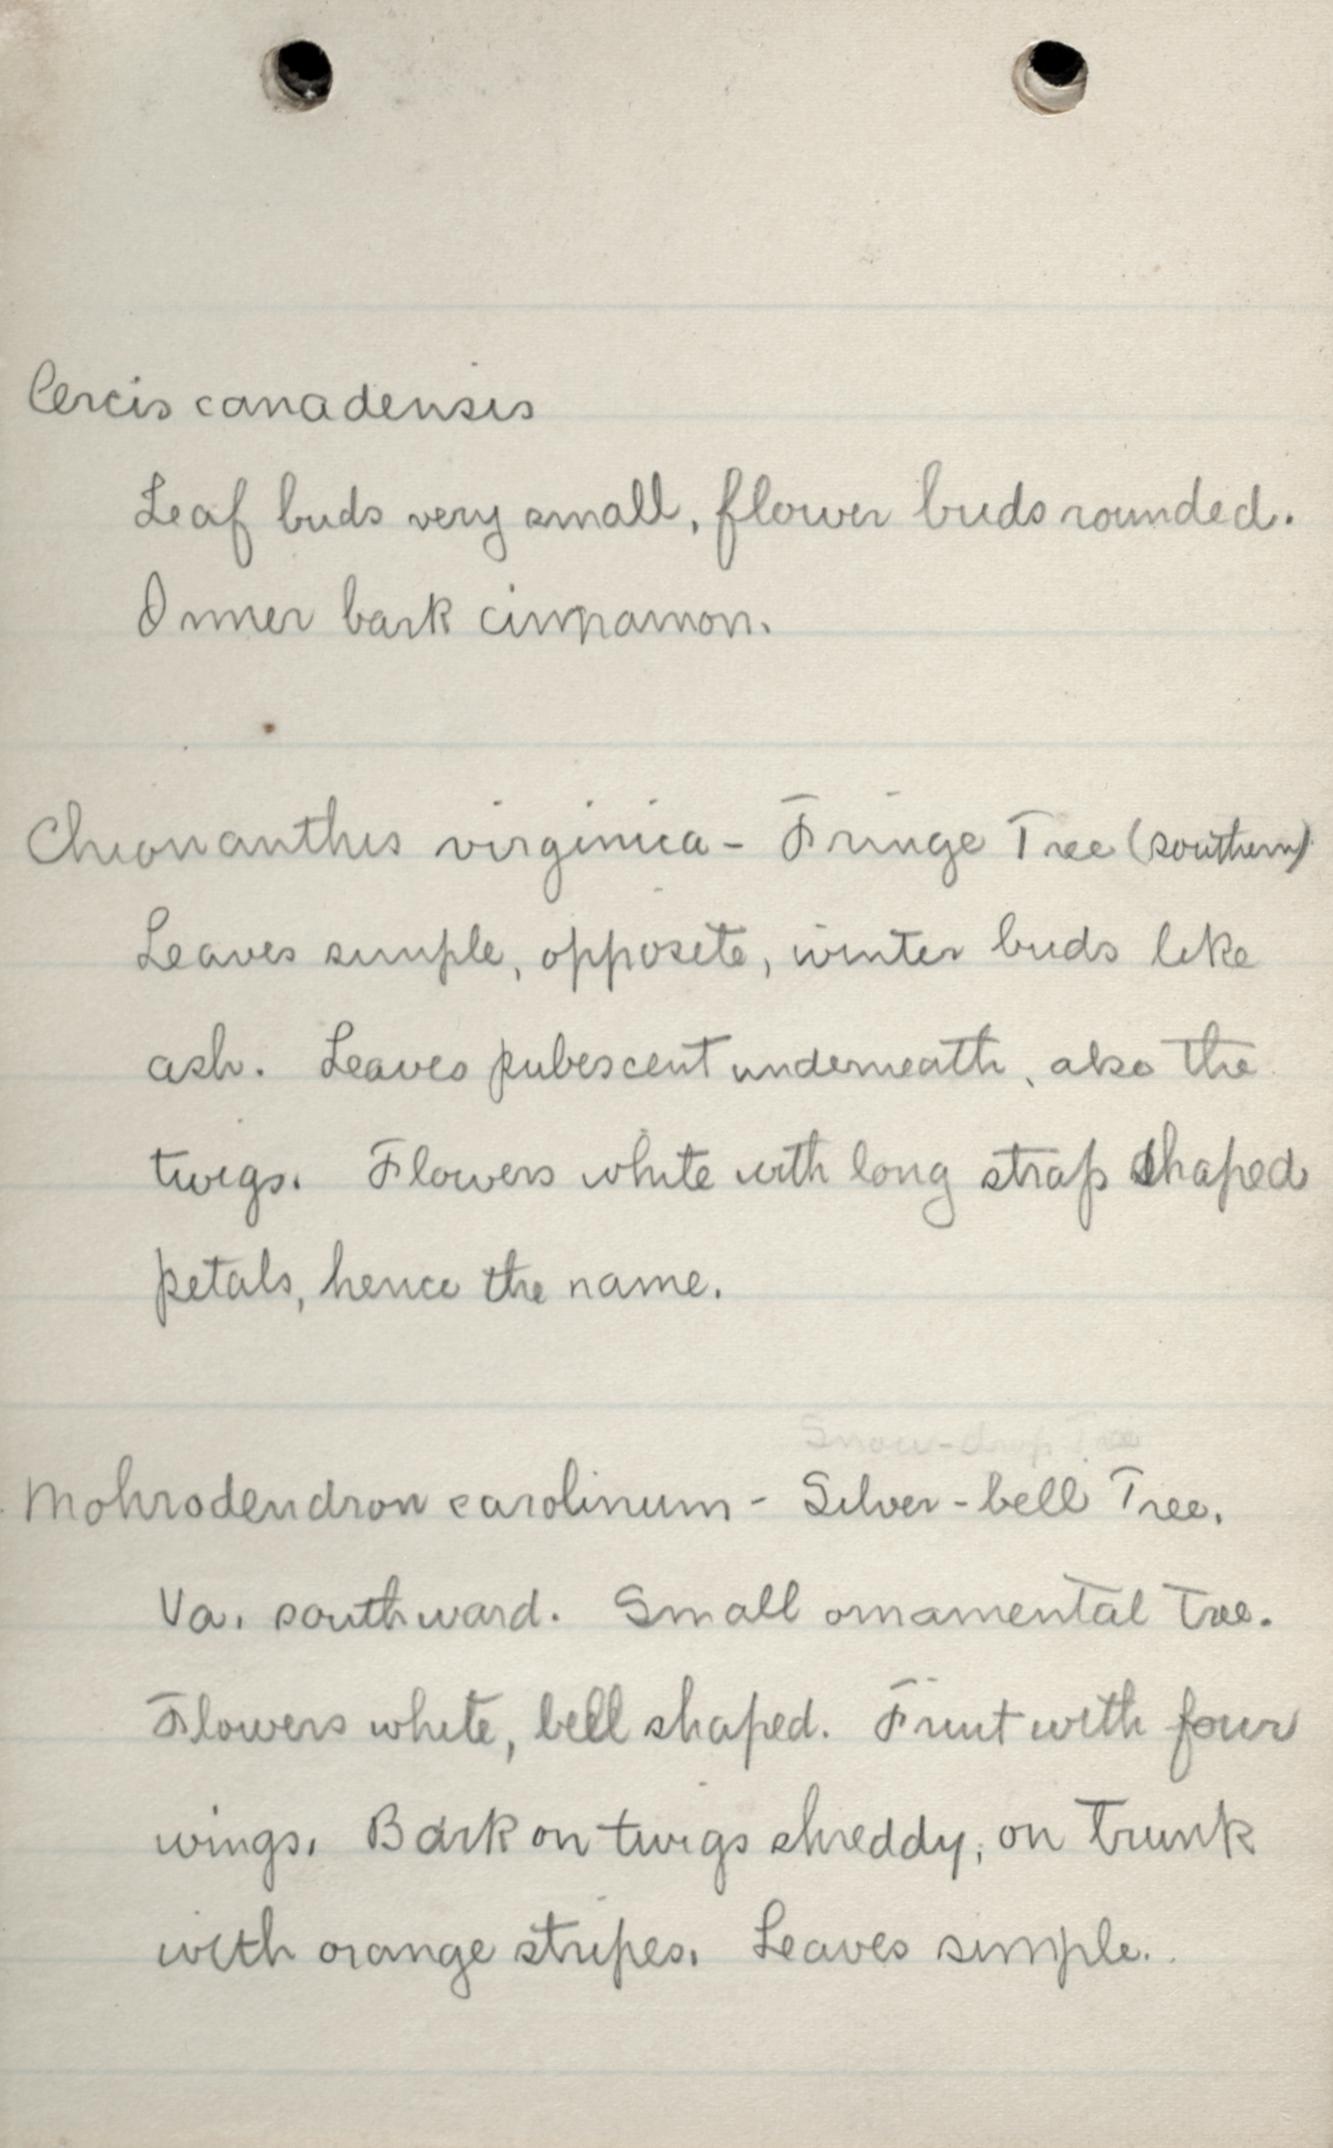 Cercis canadensis
Leaf buds very small, flower buds rounded.
Inner bark cinnamon.
Chionanthus virginica - Fringe Tree (southern)
Leaves simple, opposite, winter buds like
ash. Leaves pubescent underneath, also the
twigs. Flowers white with long strap shaped
petals, hence the name.
Snow-drop Tree
Mohrodendron carolinum - Silver-bell Tree.
Va. southward. Small ornamental tree.
Flowers white, bell shaped. Fruit with four
wings. Bark on twigs shreddy, on trunk
with orange stripes. Leaves simple.